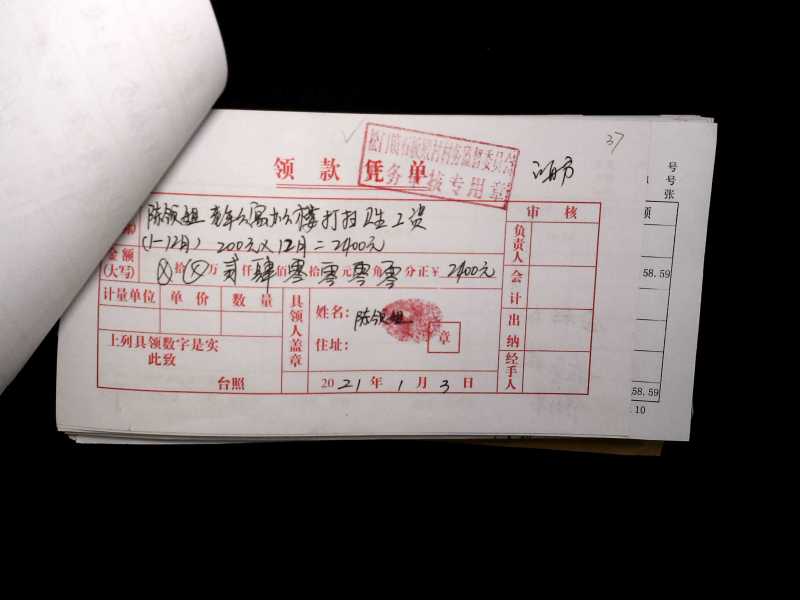 37
松门镇石板殿村村务监督委员会
财务审核专用章
领款凭单
陈领姐 老年公寓办公楼打扫卫生工资
(1-12月) 200元×12月=2400元
金额
(大写) ⊗拾⊗万贰仟肆佰零拾零元零角零分正¥2400元
计量单位 单价 数量
具领人盖章
姓名: 陈领姐
住址:
章
上列具领数字是实
此致
台照
2021年1月3日
审核
负责人
会计
出纳
经手人
号
号
张
额
58.59
58.59
10